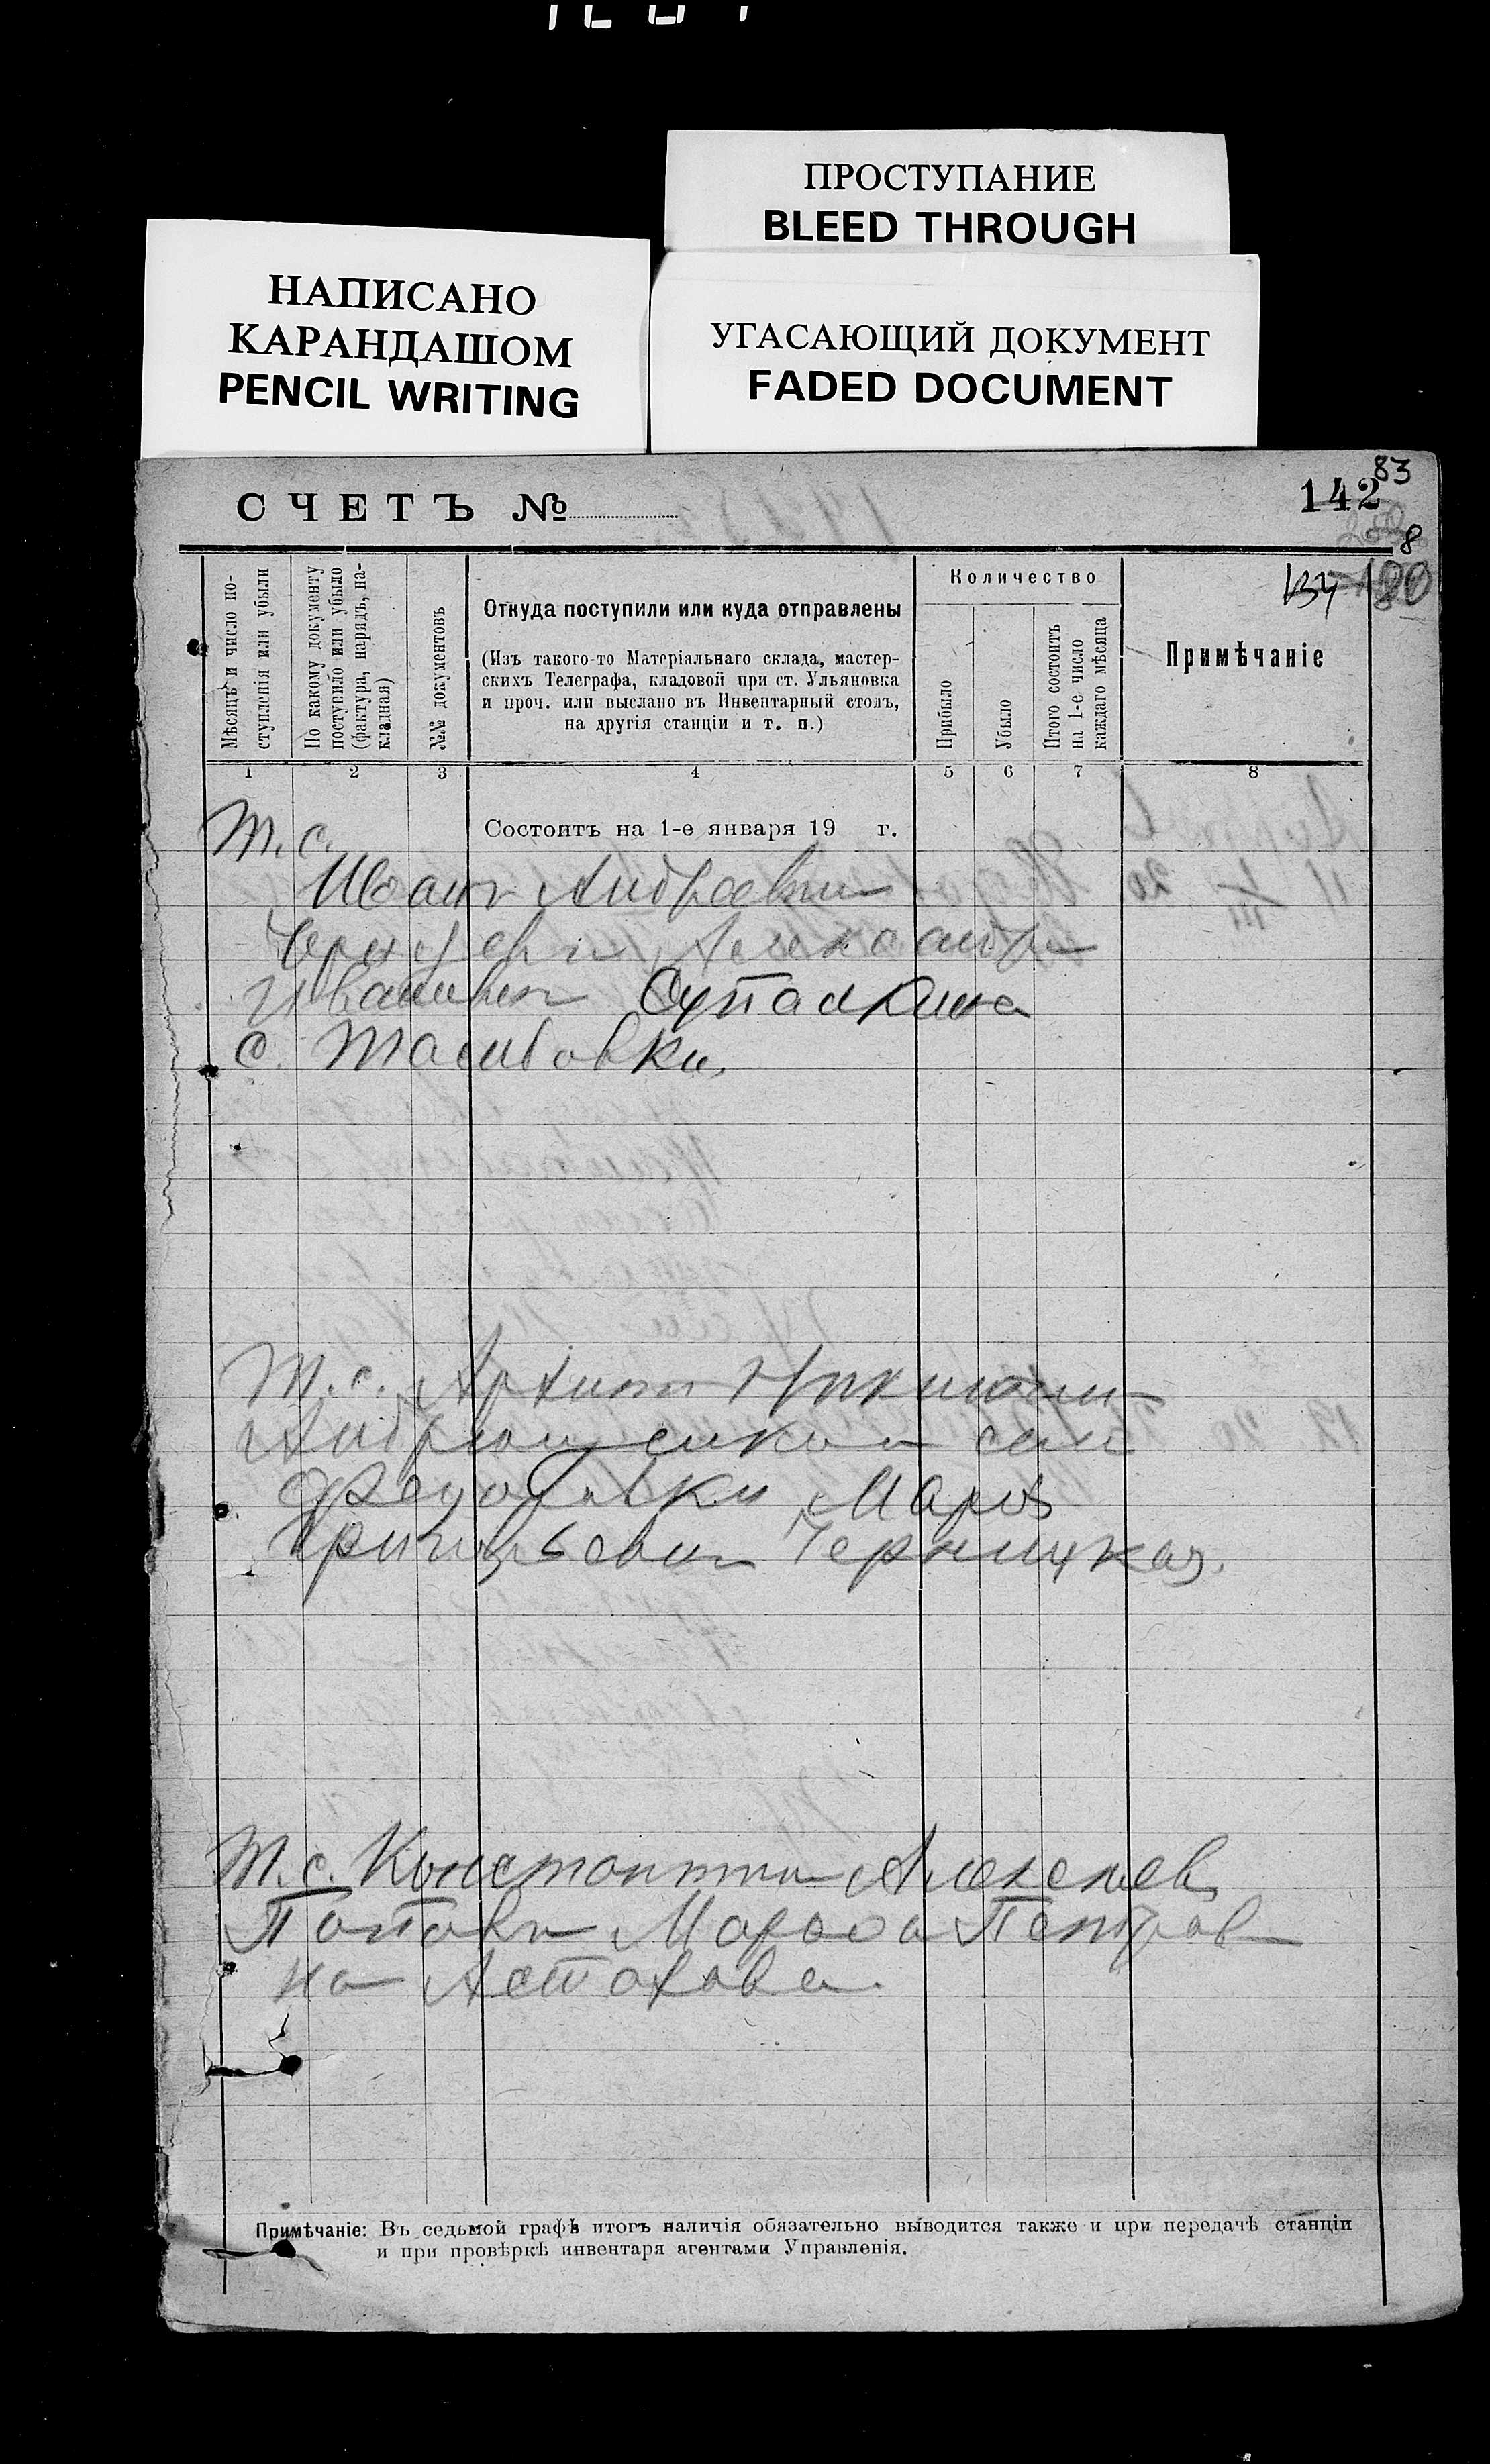 ПРОСТУПАНИЕ
BLEED THROUGH
НАПИСАНО
КАРАНДАШОМ
PENCIL WRITING
УГАСАЮЩИЙ ДОКУМЕНТ
FADED DOCUMENT
83
142
СЧЕТЪ №
8
Мѣсяцъ и число по-
ступленія или убыли
По какому документу
поступило или убыло
(фактура, нарядъ, на-
кладная)
№№ документовъ
Откуда поступили или куда отправлены
(Изъ такого-то Матеріальнаго склада, мастер-
скихъ Телеграфа, кладовой при ст. Ульяновка
и проч. или выслано въ Инвентарный столъ,
на другія станціи и т. п.)
Количество
Прибыло
Убыло
Итого состоитъ
на 1-е число
каждаго мѣсяца
Примѣчаніе
1 2 3 4 5 6 7 8
Т. с.
Состоитъ на 1-е января 19 г.
Иван Андреевич
Александра
Ивановна
с.
Т. с. Архип
сел
Федотовки Марія
Григорьевна Черницкая.
Т. с. Константин Алексеев
Попов Марфа Петров
на Астахова.
Примѣчаніе: Въ седьмой графѣ итогъ наличія обязательно выводится также и при передачѣ станціи
и при провѣркѣ инвентаря агентами Управленія.